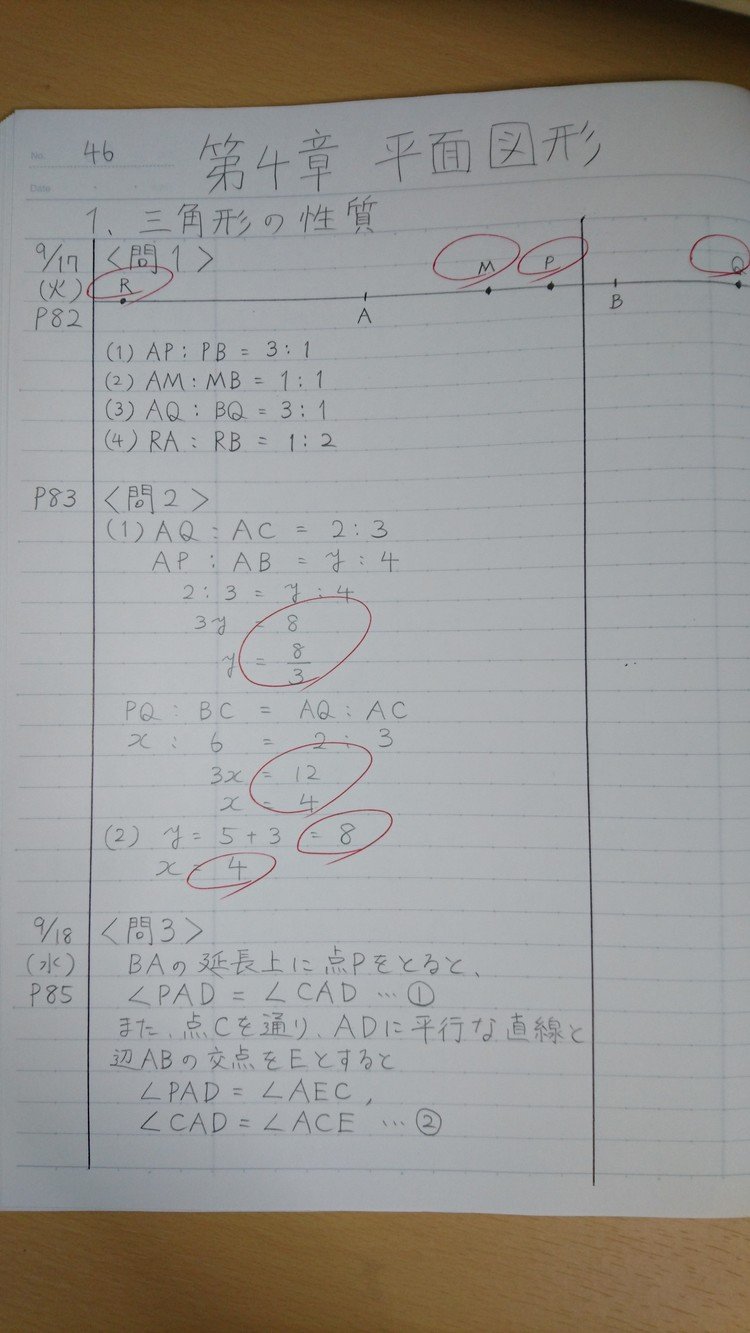 No. 46
Date
第4章 平面図形
1、三角形の性質
9/17 <問1>
(火)
P82
R A M P B Q
(1) AP : PB = 3 : 1
(2) AM : MB = 1 : 1
(3) AQ : BQ = 3 : 1
(4) RA : RB = 1 : 2
P83 <問2>
(1) AQ : AC = 2 : 3
AP : AB = y : 4
2 : 3 = y : 4
3y = 8
y = 8/3
PQ : BC = AQ : AC
x : 6 = 2 : 3
3x = 12
x = 4
(2) y = 5 + 3 = 8
x = 4
9/18 <問3>
(水) BAの延長上に点Pをとると、
P85 ∠PAD = ∠CAD … ①
また、点Cを通り、ADに平行な直線と
辺ABの交点をEとすると
∠PAD = ∠AEC,
∠CAD = ∠ACE … ②